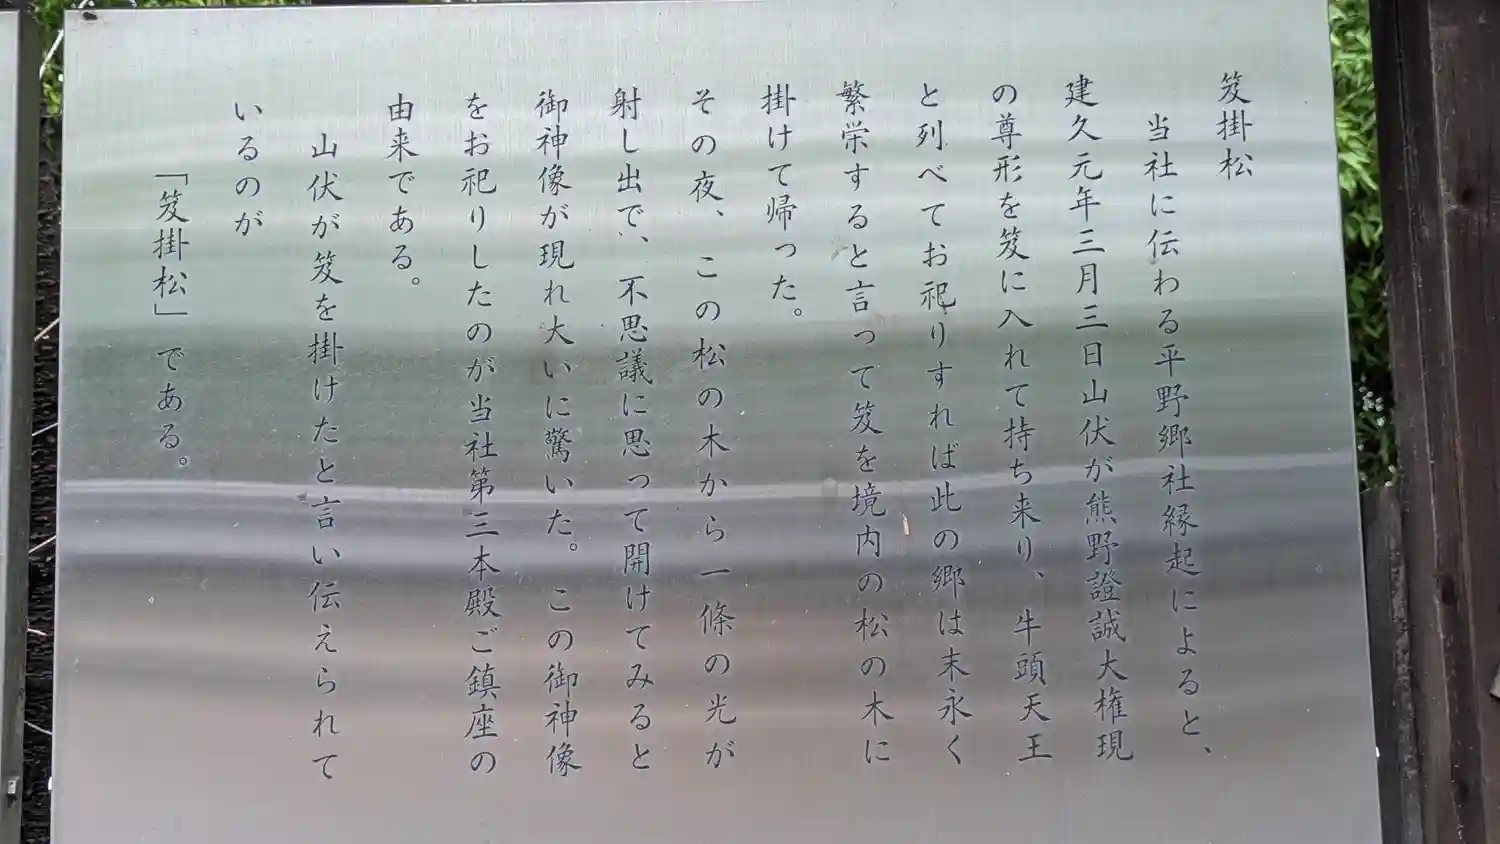 笈掛松
当社に伝わる平野郷社縁起によると、
建久元年三月三日山伏が熊野證誠大権現
の尊形を笈に入れて持ち来り、牛頭天王
と列べてお祀りすれば此の郷は末永く
繁栄すると言って笈を境内の松の木に
掛けて帰った。
その夜、この松の木から一條の光が
射し出で、不思議に思って開けてみると
御神像が現れ大いに驚いた。この御神像
をお祀りしたのが当社第三本殿ご鎮座の
由来である。
山伏が笈を掛けたと言い伝えられて
いるのが
「笈掛松」である。